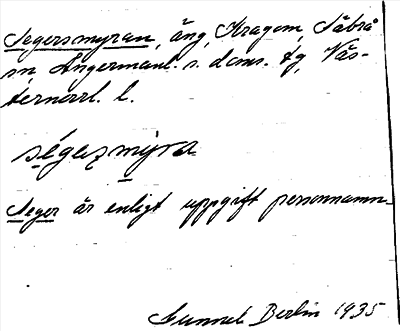 Segersmyran, äng, Kragom, Säbrå
sn Ångermanl. s. doms. tg, Väs-
ternorrl. l.
segeʂmyra
Seger är enligt uppgift personnamn
Gunnel Berlin 1935